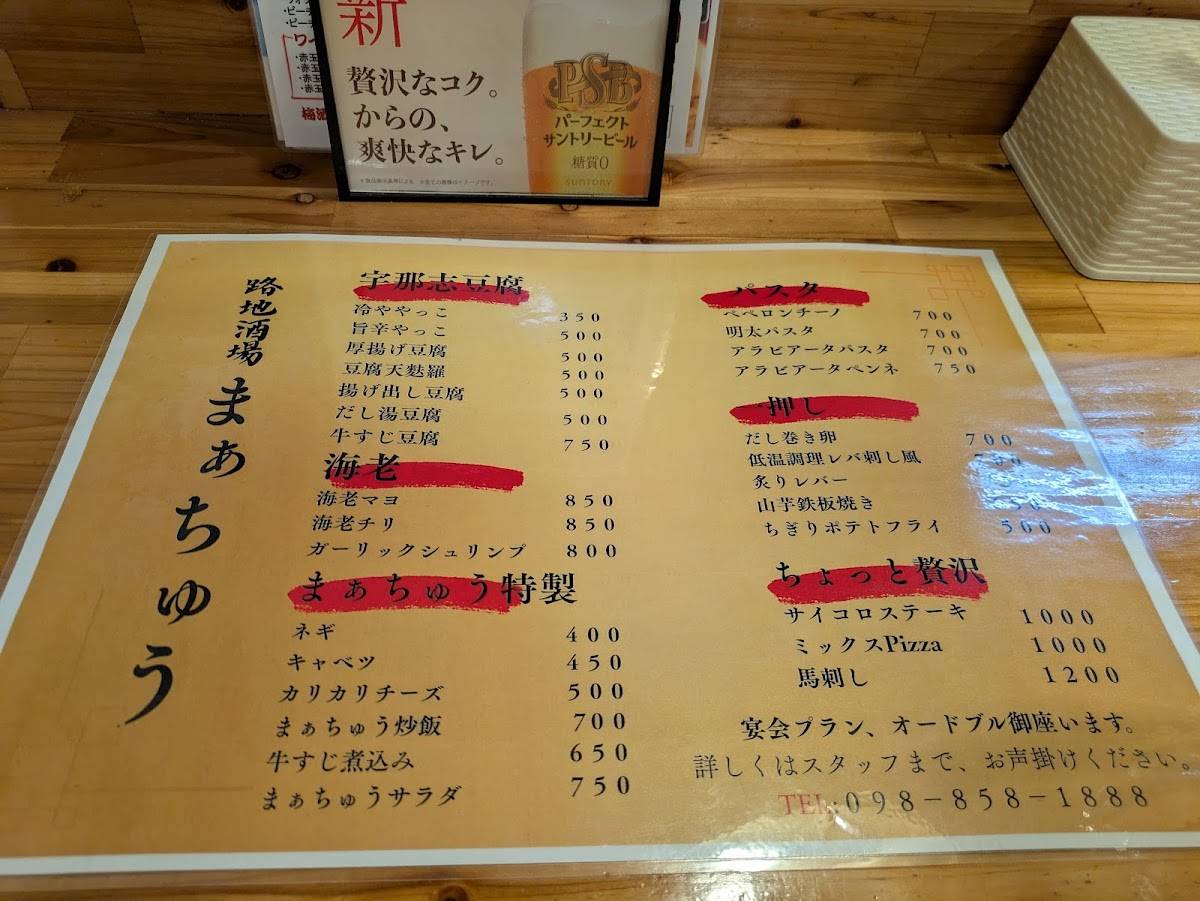 新
贅沢なコク。
からの、
爽快なキレ。
PSB
パーフェクト
サントリービール
糖質0
SUNTORY
・赤玉
・赤玉
・赤玉
梅酒
路地酒場 まぁちゅう
宇那志豆腐
冷ややっこ 350
旨辛やっこ 500
厚揚げ豆腐 500
豆腐天麩羅 500
揚げ出し豆腐 500
だし湯豆腐 500
牛すじ豆腐 750
海老
海老マヨ 850
海老チリ 850
ガーリックシュリンプ 800
まぁちゅう特製
ネギ 400
キャベツ 450
カリカリチーズ 500
まぁちゅう炒飯 700
牛すじ煮込み 650
まぁちゅうサラダ 750
パスタ
ペペロンチーノ 700
明太パスタ 700
アラビアータパスタ 700
アラビアータペンネ 750
一押し
だし巻き卵 700
低温調理レバ刺し風
炙りレバー
山芋鉄板焼き
ちぎりポテトフライ 500
ちょっと贅沢
サイコロステーキ 1000
ミックスPizza 1000
馬刺し 1200
宴会プラン、オードブル御座います。
詳しくはスタッフまで、お声掛けください。
TEL:098-858-1888